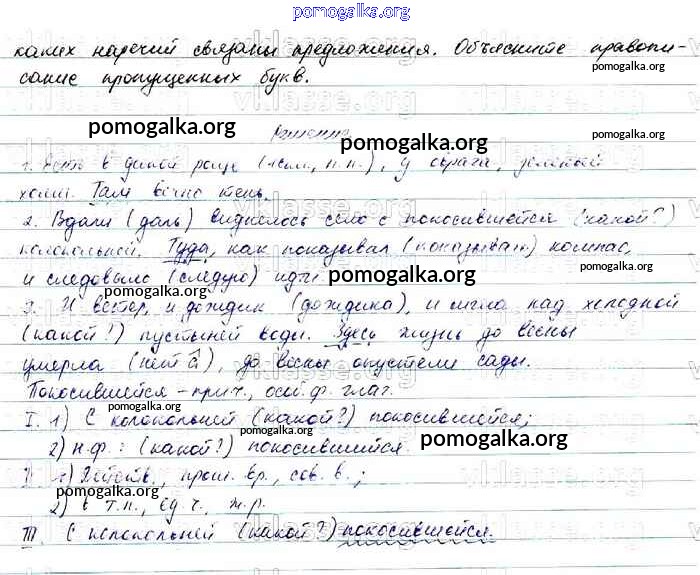 pomogalka.org
каких наречий связаны предложения. Объясните правопи-
сание пропущенных букв.
pomogalka.org
pomogalka.org
pomogalka.org
Решение
1. Есть в дикой роще (п.п.), у оврага, зелёный
холм. Там вечно тень.
2. Вдали (даль) виднелось село с покосившейся (какой?)
колокольней. Туда, как показывал (показываю) компас,
и следовало (следую) идти.
pomogalka.org
pomogalka.org
pomogalka.org
3. И ветер, и дождик (дождика), и мгла над холодной
(какой?) пустыней воды. Здесь жизнь до весны
умерла (нет а), до весны опустели сады.
pomogalka.org
Покосившейся – прич., особ. ф. глаг.
I. 1) С колокольней (какой?) покосившейся;
pomogalka.org
2) н.ф.: (какой?) покосившийся.
pomogalka.org
II. 1) Действ., прош. вр., сов. в.;
pomogalka.org
2) в т.п., ед.ч., ж.р.
III. С колокольней (какой?) покосившейся.
pomogalka.org